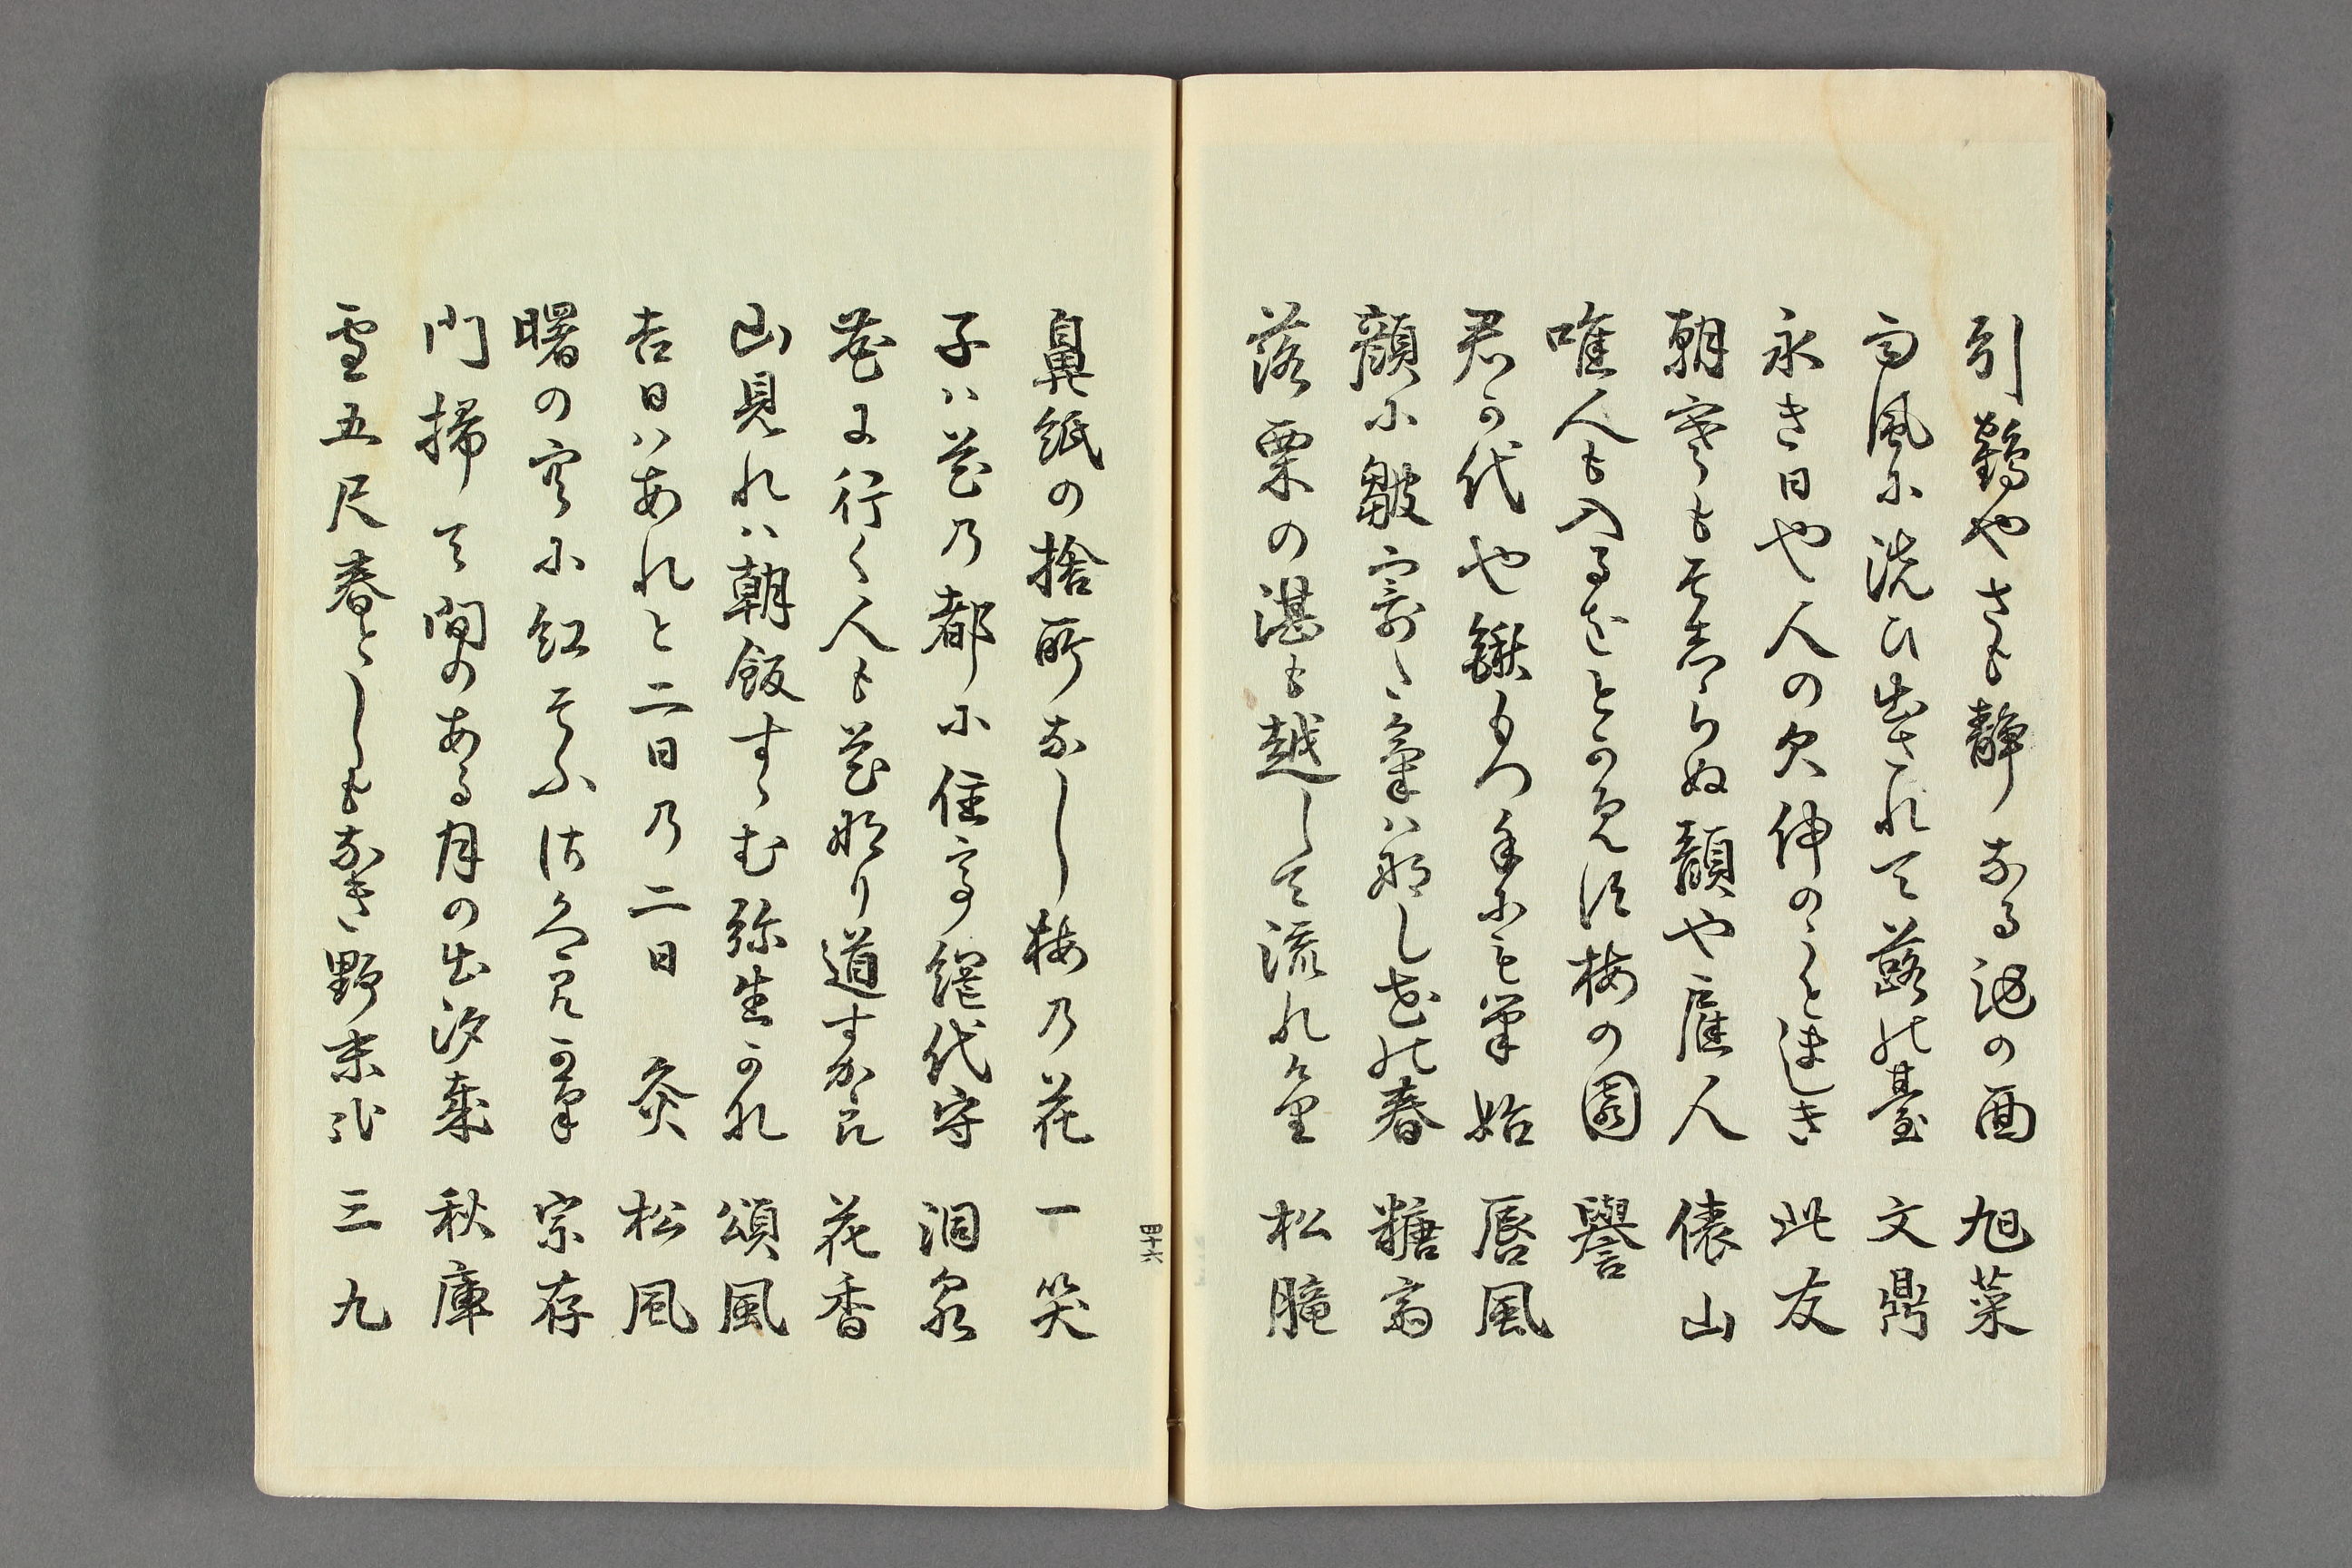 引鶴やさも静なる池の面 旭菜
雨風に洗ひ出されて蕗の薹 文鼎
永き日や人の欠伸のうとましき 此友
朝寒もまたしらぬ顔や雇人 俵山
唯人も入るをとかめす梅の園 譽
君か代や鍬もつ手にも筆始 唇風
顔に皺寄く気はなし花の春 糖翁
落栗の溝も越して流れ 松朧
鼻紙の捨所なし梅乃花 一笑
子は花乃都に住て網代守 洞泉
花に行く人も花なり道すから 花香
山見れは朝飯すゝむ弥生かれ 頌風
吉日はあれと二日乃二日灸 松風
曙の空に紅そふ 宗存
門掃て間のある月の出汐哉 秋庫
雪五尺春としもなき野末 三九
四十六